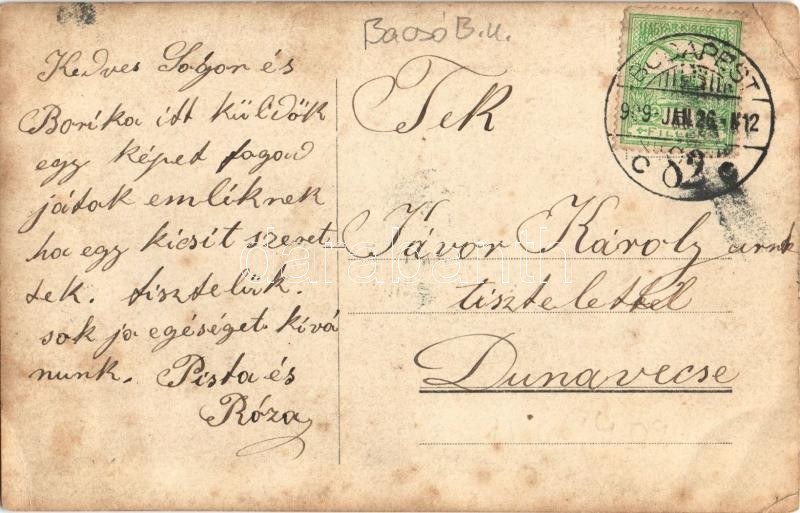 Bacsó B. u.
Kedves Sógor és
Borika itt küldök
egy képet fogad
játok emléknek
ha egy kicsit szeret
tek. tisztelük.
sok jo egéséget kívá
nunk. Pista és
Róza
Tek
Jávor Károly urnk
tisztelettel
Dunavecse
BUDAPEST
JAN 26
FILLÉR
62
darabanth